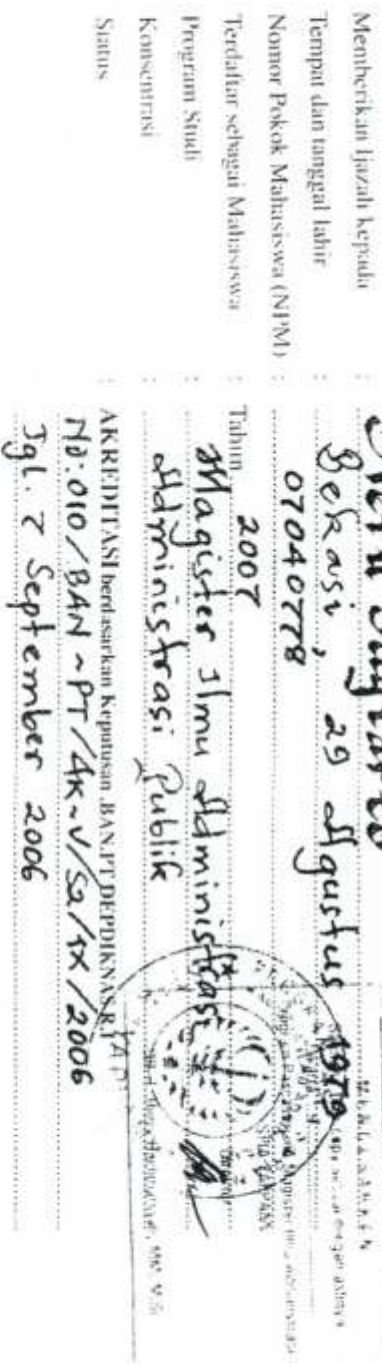 Memberikan Ijazah kepada :
Tempat dan tanggal lahir : Bekasi, 29 Agustus
Nomor Pokok Mahasiswa (NPM) : 07040778
Terdaftar sebagai Mahasiswa : Tahun 2007
Program Studi : Magister Ilmu Administrasi
Konsentrasi : Administrasi Publik
Status : AKREDITASI berdasarkan Keputusan BAN.PT.DEPDIKNAS.RI
No: 010/BAN-PT/AK-V/S2/IX/2006
Tgl. 2 September 2006